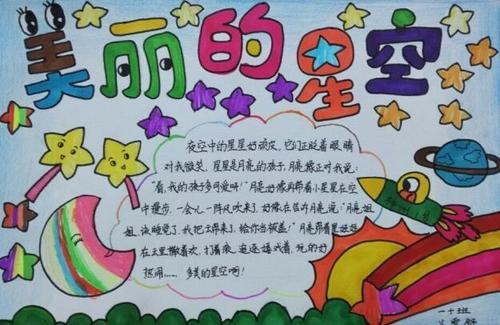 美丽的星空
夜空中的星星好顽皮，它们正眨着眼睛
对我微笑，星星是月亮的孩子，月亮像正对我说：
“看，我的孩子多可爱呀！”月亮好像用带着小星星在空
中漫步，一会儿一阵风吹来了，好像在告诉月亮说，“月亮姐
姐，该睡觉了，我把云带来了，给你当被盖！”月亮带着星娃娃
在云里撒着欢，打着滚，追逐嬉戏着，玩的好
热闹……多美的星空啊！
一十班